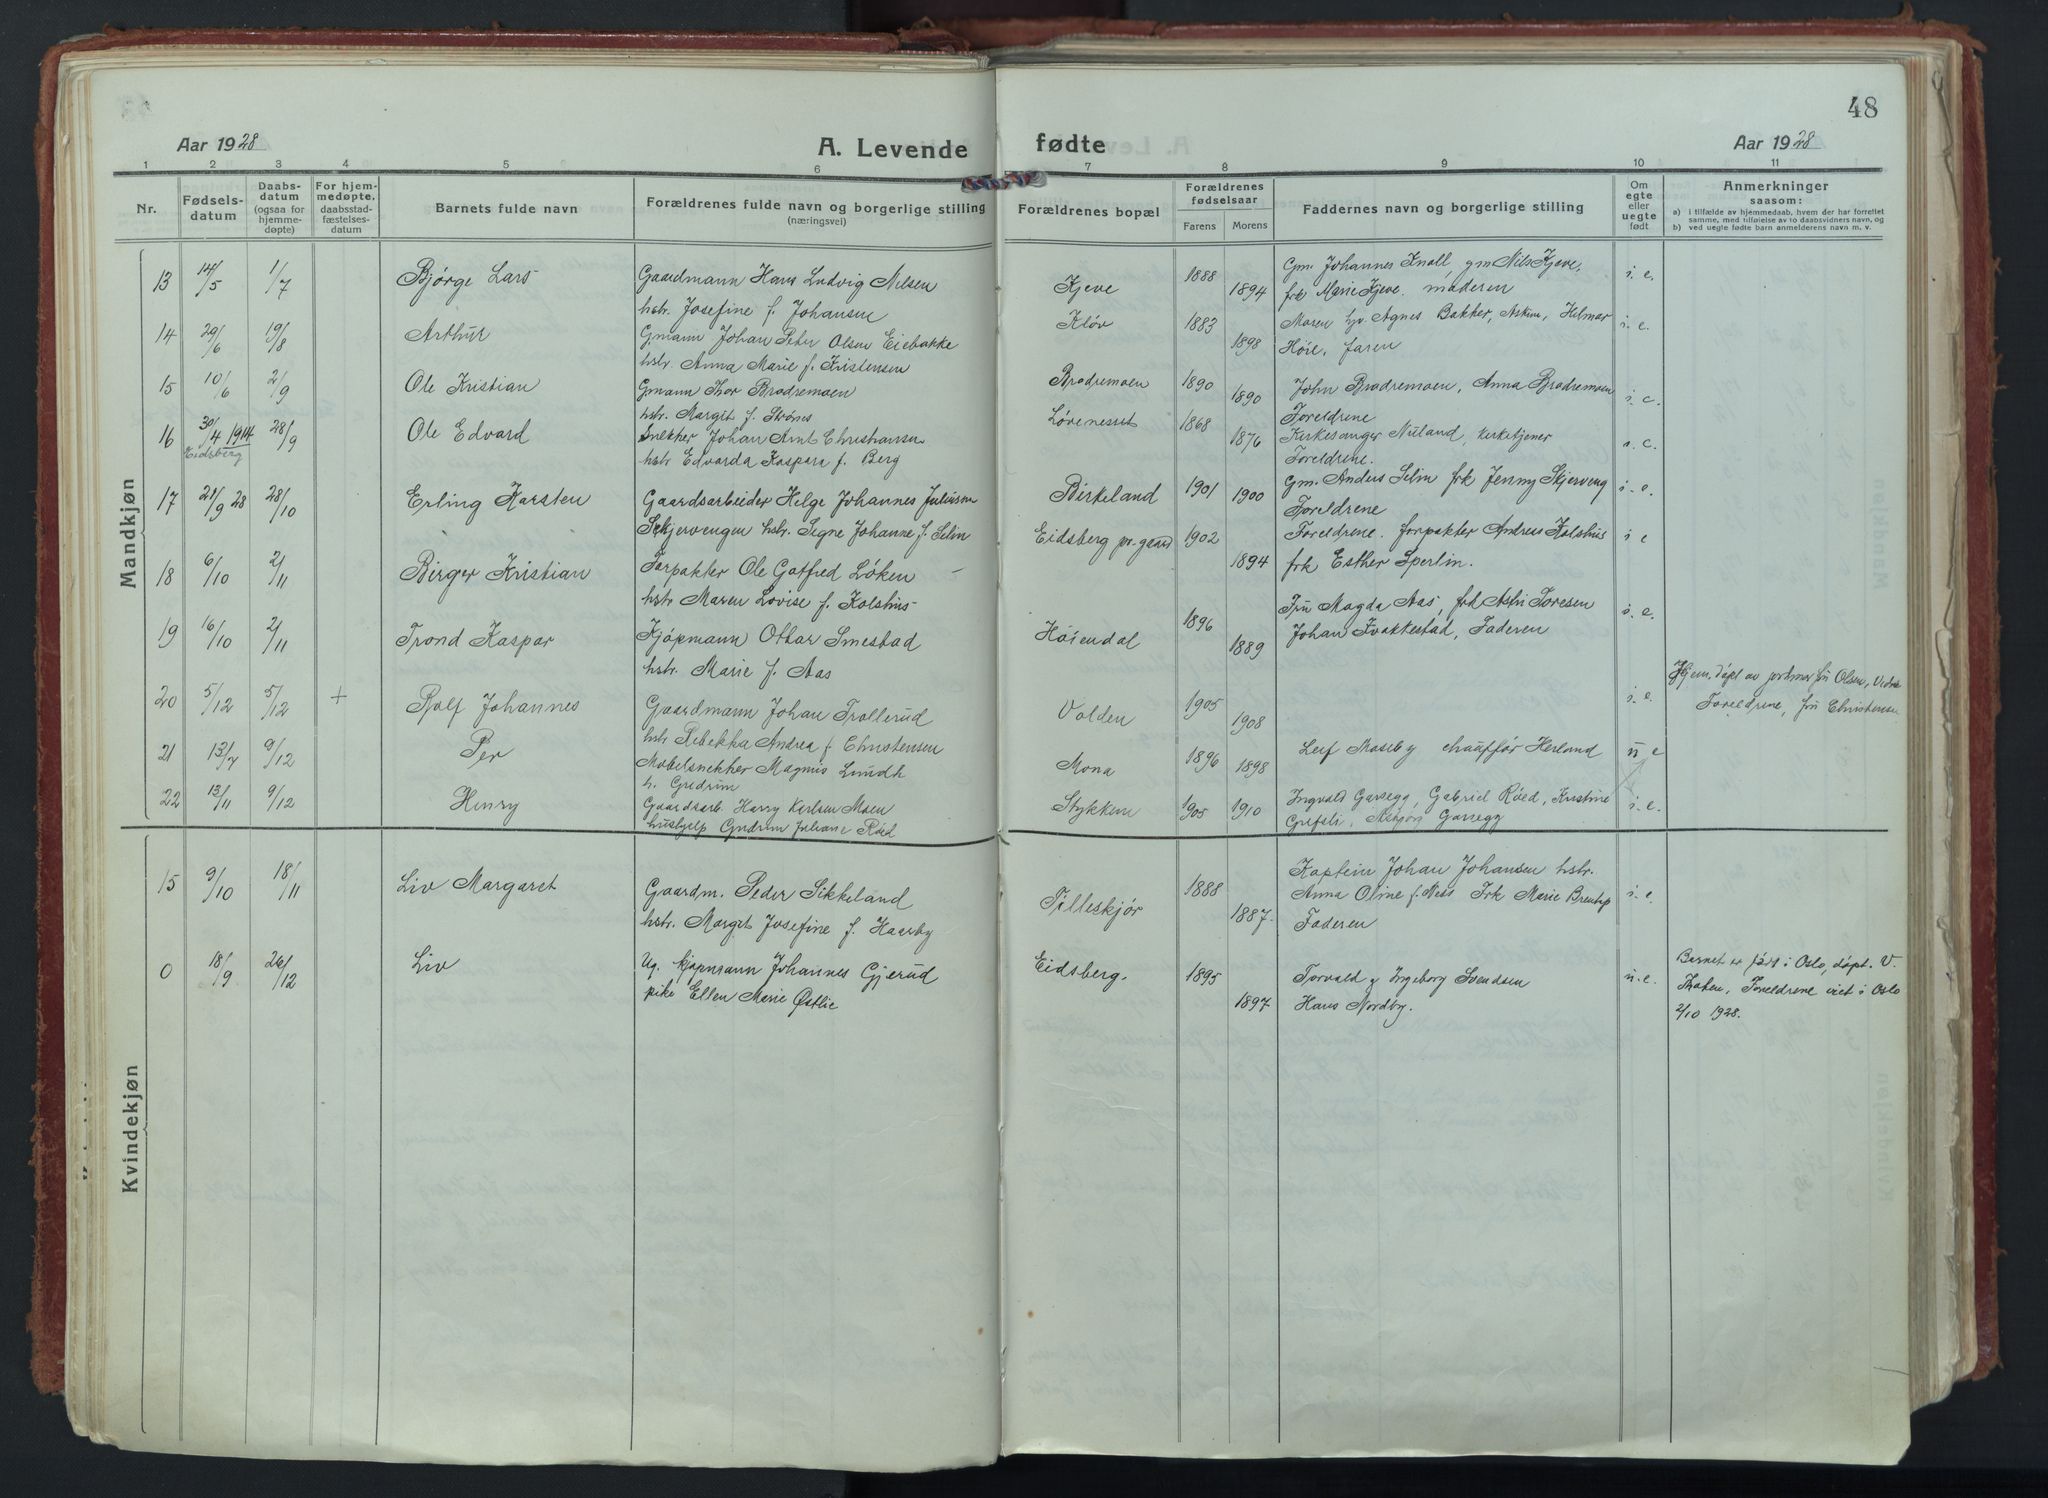 48
Aar 1928
A. Levende fødte
Aar 1928
1 2 3 4 5 6 7 8 9 10 11
Nr.
Fødselsdatum
Daabsdatum (ogsaa for hjemmedøpte)
For hjemmedøpte, daabsstadfæstelsesdatum
Barnets fulde navn
Forældrenes fulde navn og borgerlige stilling (næringsvei)
Forældrenes bopæl
Forældrenes fødselsaar
Farens Morens
Faddernes navn og borgerlige stilling
Om egte eller uegte født
Anmerkninger saasom:
a) i tilfælde av hjemmedaab, hvem der har forrettet samme, med tilføielse av to daabsvidners navn, og
b) ved uegte fødte barn anmelderens navn m. v.
Mandkjøn
13 14/5 1/7 Bjørge Lars Gaardmann Hans Ludvig Nilsen Kjeve 1888 Gm. Johannes Knoll, gm Nils Kjeve, i. e.
hstr. Josefine f. Johansen 1894 frk Marie Kjeve. moderen
14 29/6 19/8 Arthur G.mann Johan Peter Olsen Eiebakke Kløv 1883 Maren hv. Agnes Bakker, Askim, Helmar i. e.
hstr. Anna Marie f. Kristensen 1898 Høie, faren
15 10/6 2/9 Ole Kristian Gmann Thor Brødremoen Brødremoen 1890 John Brødremoen, Anna Brødremoen i. e.
hstr. Margit f. Strønes 1890 Foreldrene
16 30/4 1914 28/9 Ole Edvard Snekker Johan Arnt Christiansen Løvenesset 1868 Kirkesanger Nuland, kirketjener
Eidsberg hstr Edvarda Kaspara f. Berg 1876 Foreldrene.
17 21/9 28 28/10 Erling Karsten Gaardsarbeider Helge Johannes Juliussen Birkeland 1901 1900 Gm. Anders Selin frk Jenny Skjerveng i. e.
Skjervengen hstr. Signe Johanne f. Selin Foreldrene
18 6/10 2/11 Birger Kristian Forpakter Ole Gotfred Løken Eidsberg pr.gaard 1902 Foreldrene. forpakter Andreas Kolshus i e
hstr Maren Lovise f. Kolshus 1894 frk Esther Sperlin.
19 16/10 2/11 Trond Kaspar Kjøpmann Ottar Smestad Høiendal 1896 Fru Magda Aas, frk Astri Toresen i. e.
hstr. Marie f. Aas 1889 Johan Tvaktestad, Faderen
20 5/12 5/12 + Rolf Johannes Gaardmann Johan Trollerud Volden 1905 1908 i. e. Hjem.døpt av jordmor fru Olsen,
hstr Rebekka Andrea f Christensen Foreldrene, fru Christensen
21 13/7 9/12 Per Møbelsnekker Magnus Lundh Mona 1896 1898 Leif Moseby chauffør Herland u e
h. Gudrun
22 13/11 9/12 Henry Gaardsarb. Harry Karlsen Moen Stykkem 1905 1910 Ingvald Garsegg, Gabriel Røed, Kristine i. e.
hushjelp Gudrun Juliane Røed Grefsli, Asbjørg Garsegg
Kvindekjøn
15 9/10 18/11 Liv Margaret Gaardm. Peder Sikkeland Tilleskjør 1888 Kaptein Johan Johansen hstr. i. e.
hstr. Margit Josefine f. Haarby 1887 Anna Oline f. Ness Frk Marie
Faderen
0 18/9 26/12 Liv Ug. kjøpmann Johannes Gjerud Eidsberg. 1895 Torvald og Ingeborg Svendsen u. e. Barnet er født i Oslo, døpt. V.
pike Ellen Marie Østlie 1897 Hans Nordby. Foreldrene viet i Oslo
2/10 1928.